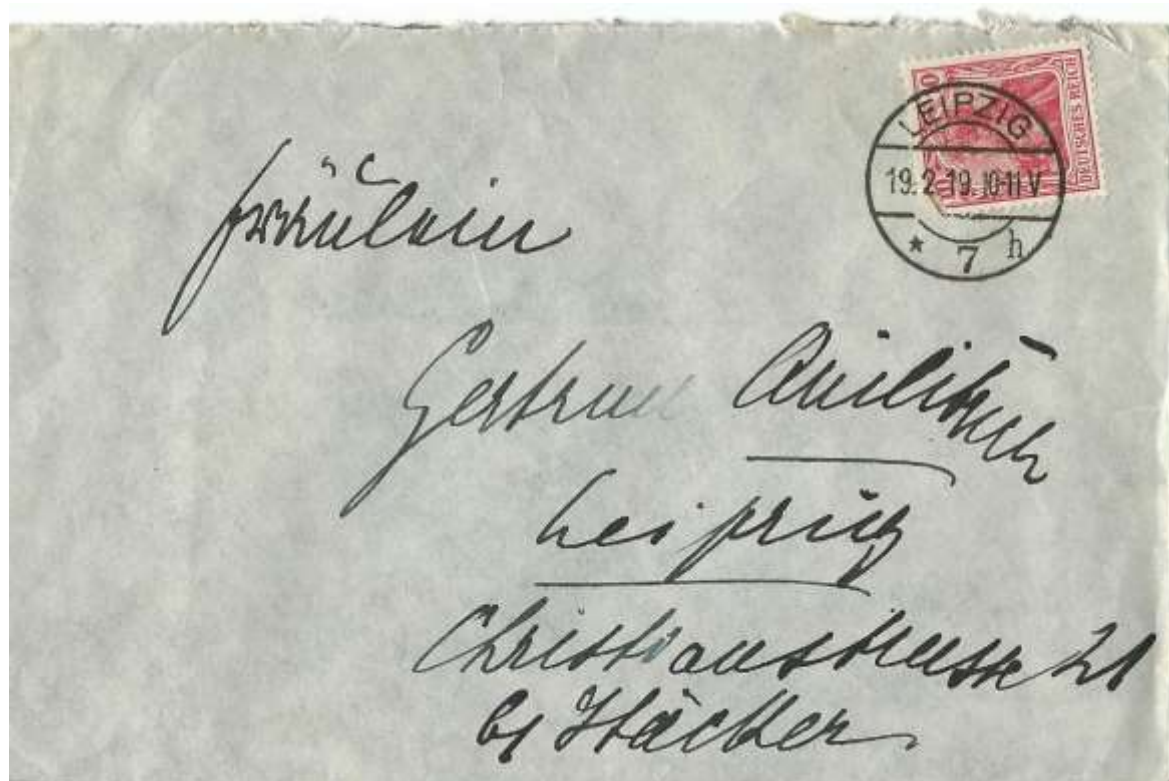 DEUTSCHES REICH
LEIPZIG
19.2.19.10-11V
* 7 h
Fräulein
Gertrud
Leipzig
Christianstrasse 21
Häcker